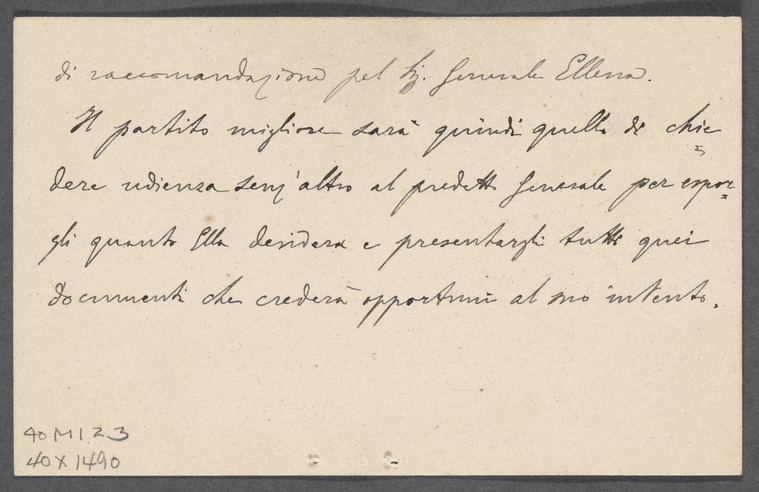 di raccomandazione pel Sig. Generale Ellena.
Il partito migliore sarà quindi quello di chie=
dere udienza senz'altro al predetto Generale per espor=
gli quanto Ella desidera e presentargli tutti quei
documenti che crederà opportuni al suo intento.
40M123
40X1490